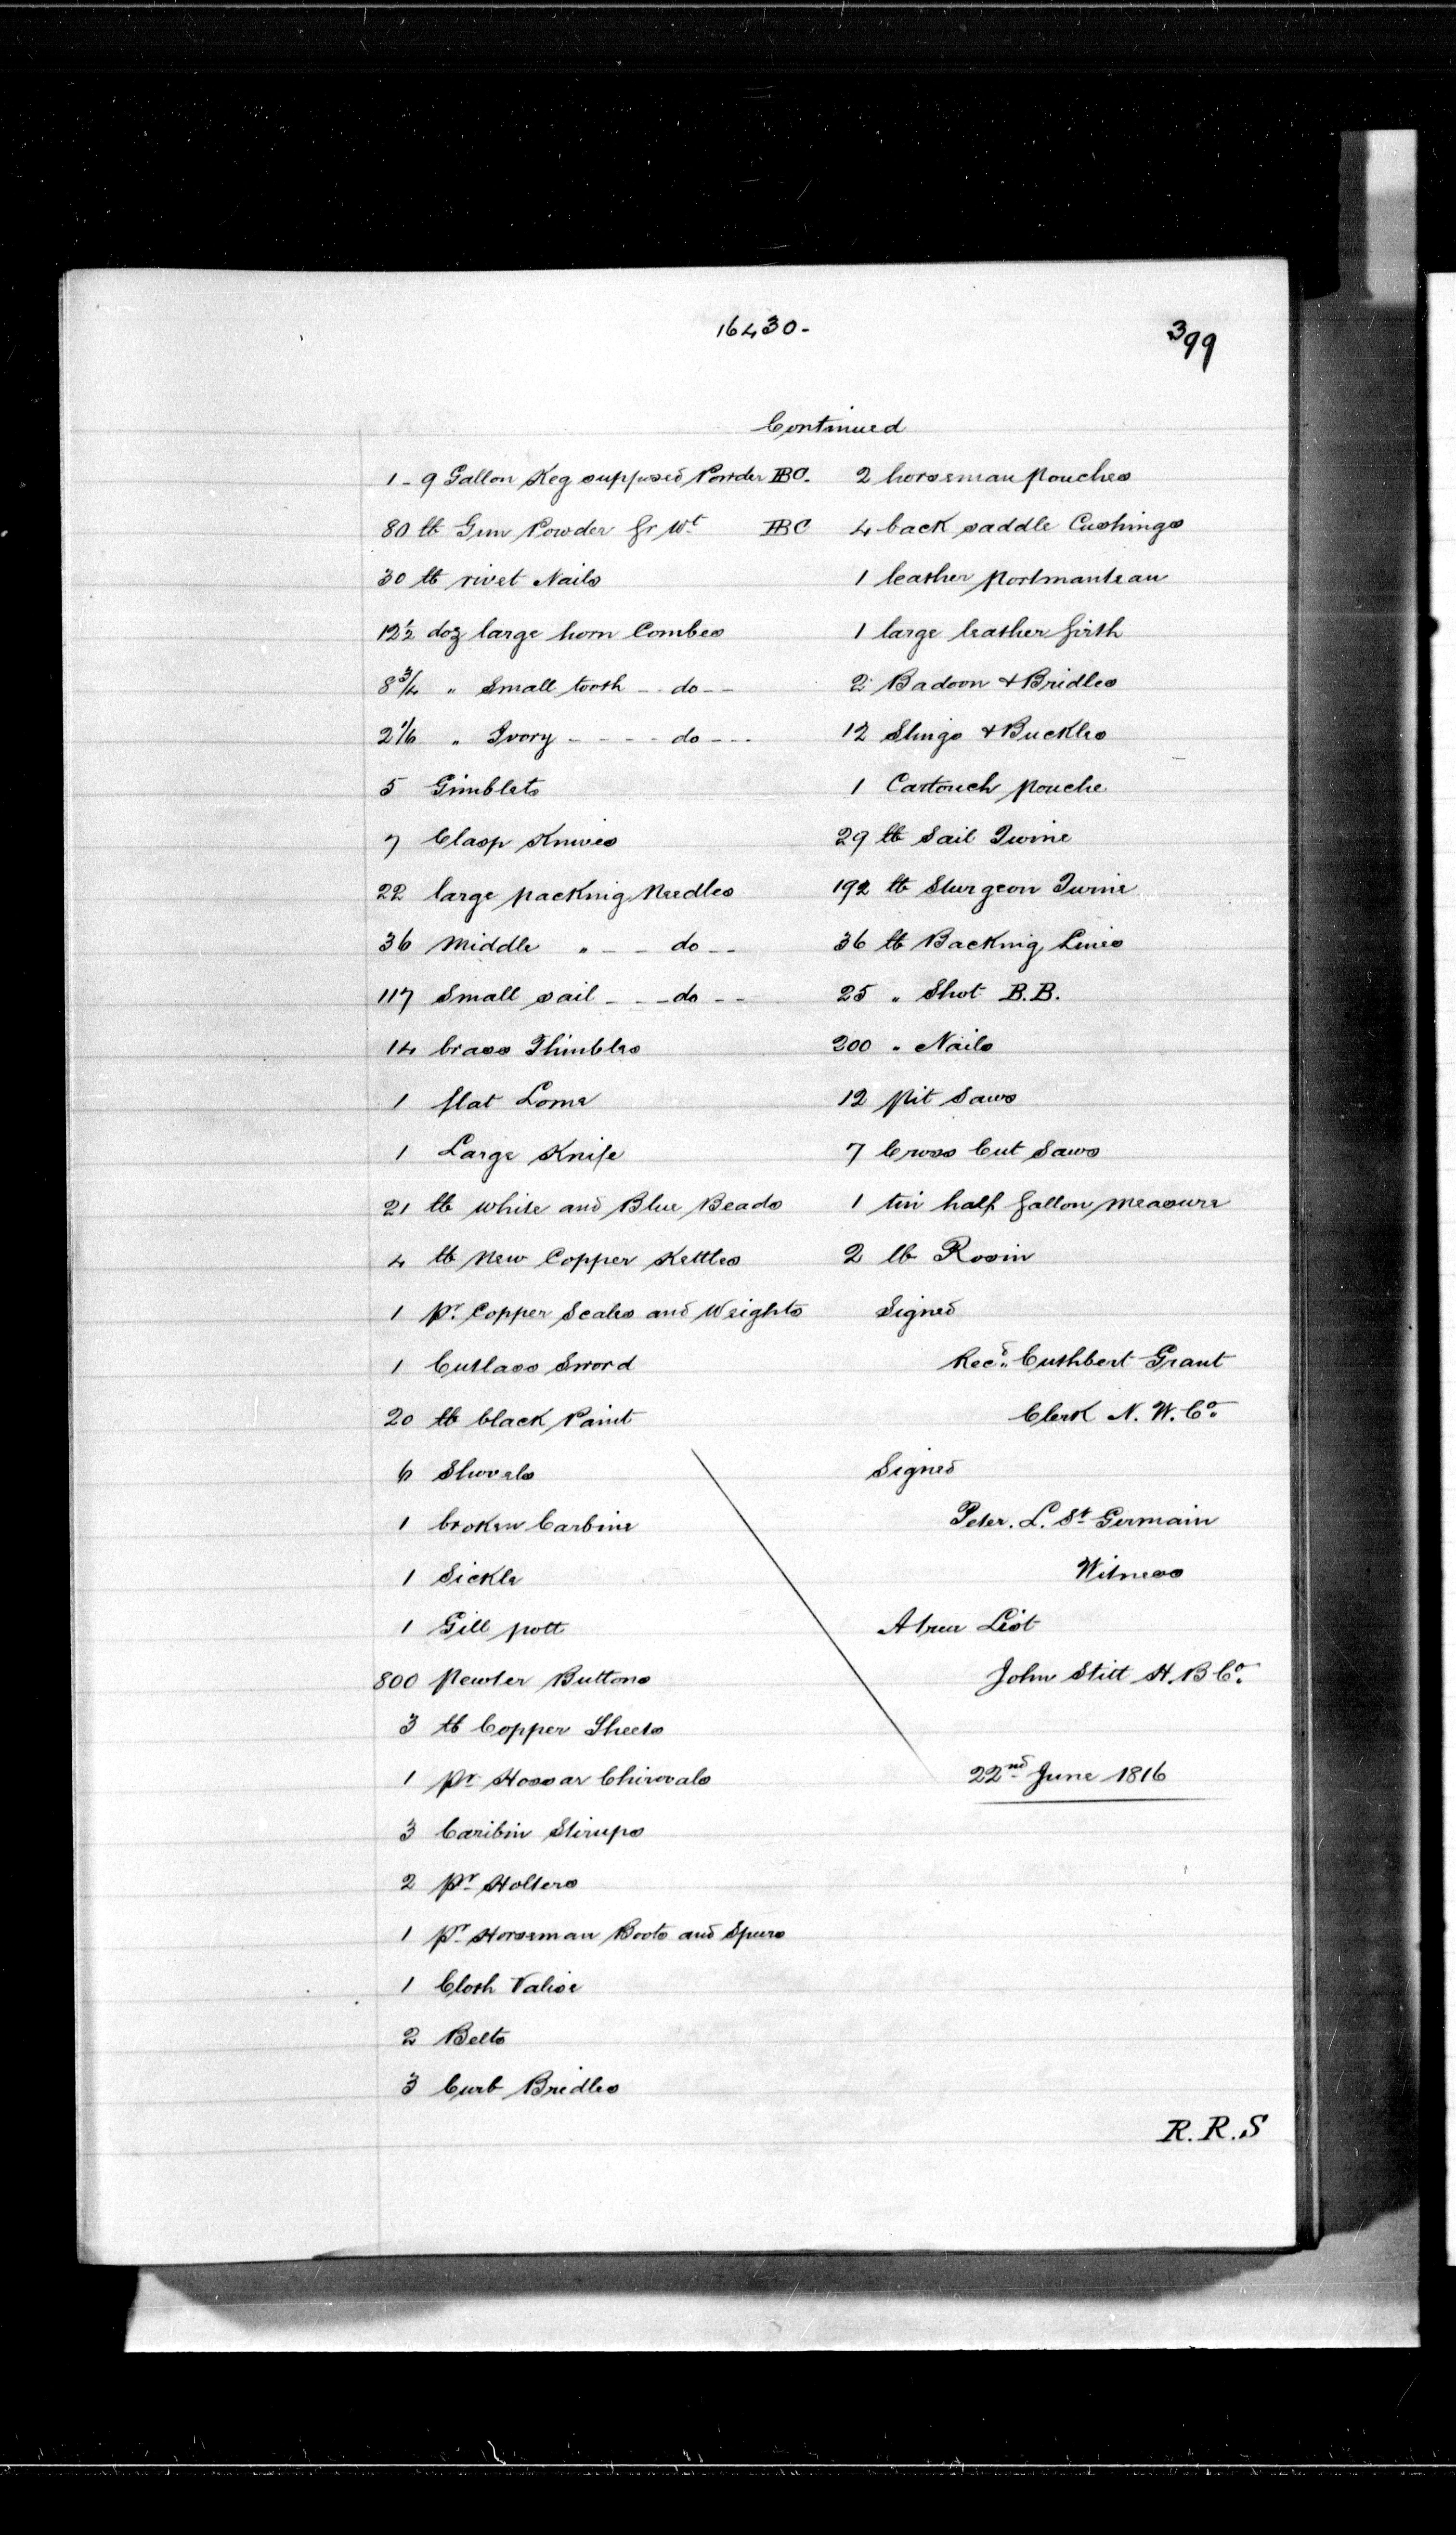 16430-
399
Continued
1 - 9 Gallon Keg supposed Powder HBC.
80 lb Gun Powder Gr Wt HBC
30 lb rivet Nails
12 1/2 doz large horn Combes
8 3/4 " Small tooth -- do --
2 1/6 " Ivory - - - - do - - -
5 Gimblets
7 Clasp Knives
22 large packing Needles
36 Middle " - - do - -
117 Small sail - - - do - -
14 brass Thimbles
1 flat Lome
1 Large Knife
21 lb White and Blue Beads
4 lb New Copper Kettles
1 pr. Copper Scales and Weights
1 Cutlass Sword
20 lb black Paint
6 Shovels
1 broken Carbine
1 Sickle
1 Gill pott
800 Pewter Buttons
3 lb Copper Sheets
1 pr Hossar Chirovals
3 Caribin Stirups
2 pr Holters
1 pr Horseman Boots and Spurs
1 Cloth Valise
2 Belts
3 Curb Bridles
2 horseman Pouches
4 back saddle Cushings
1 leather Portmanteau
1 large leather Girth
2 Badoon & Bridles
12 Slings & Buckles
1 Cartouch Pouche
29 lb Sail Twine
192 lb Sturgeon Twine
36 lb Backing Lines
25 " Shot B.B.
200 " Nails
12 Pit Saws
7 Cross Cut Saws
1 tin half Gallon Measure
2 lb Rosin
Signed
Recd. Cuthbert Grant
Clerk N. W. Co.
Signed
Peter. L. St Germain
Witness
A true List
John Stitt H. B Co.
22nd June 1816
R.R.S